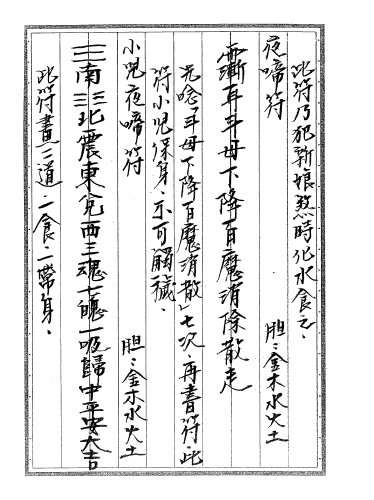 此符乃犯新娘煞時化水食之.
夜啼符　胆:金木水火土
斗母下降百魔消除散走
先唸「斗母下降百魔消散」七次.再書符.此
符小児保身.不可觸穢.
小児夜啼符　胆:金木水火土
三南三北震東兌西三魂七魄一吸歸中平安大吉
此符畫二道一食.一帶身.